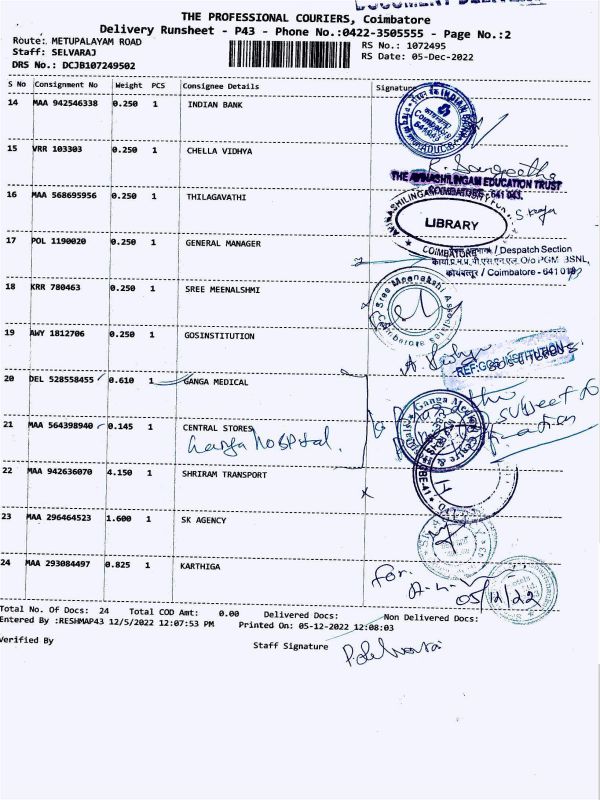 THE PROFESSIONAL COURIERS, Coimbatore
Delivery Runsheet - P43 - Phone No.:0422-3505555 - Page No.:2
Route: METUPALAYAM ROAD
RS No.: 1072495
Staff: SELVARAJ
RS Date: 05-Dec-2022
DRS No.: DCJB107249502
S No Consignment No Weight PCS Consignee Details Signature
14 MAA 942546338 0.250 1 INDIAN BANK
15 VRR 103303 0.250 1 CHELLA VIDHYA
THE AVINASHILINGAM EDUCATION TRUST
COIMBATORE - 641 043.
16 MAA 568695956 0.250 1 THILAGAVATHI
LIBRARY
17 POL 1190020 0.250 1 GENERAL MANAGER
COIMBATORE
/ Despatch Section
O/o PGM BSNL,
कोयंबत्तूर / Coimbatore - 641 018
18 KRR 780463 0.250 1 SREE MEENALSHMI
Sree Meenakshi Associates
Coimbatore
19 AWY 1812706 0.250 1 GOSINSTITUTION
20 DEL 528558455 0.610 1 GANGA MEDICAL
21 MAA 564398940 0.145 1 CENTRAL STORES
Ganga Hospital.
Subject to
22 MAA 942636070 4.150 1 SHRIRAM TRANSPORT
23 MAA 296464523 1.600 1 SK AGENCY
24 MAA 293084497 0.825 1 KARTHIGA
For
05/12/22
Total No. Of Docs: 24 Total COD Amt: 0.00 Delivered Docs: Non Delivered Docs:
Entered By :RESHMAP43 12/5/2022 12:07:53 PM Printed On: 05-12-2022 12:08:03
Verified By
Staff Signature